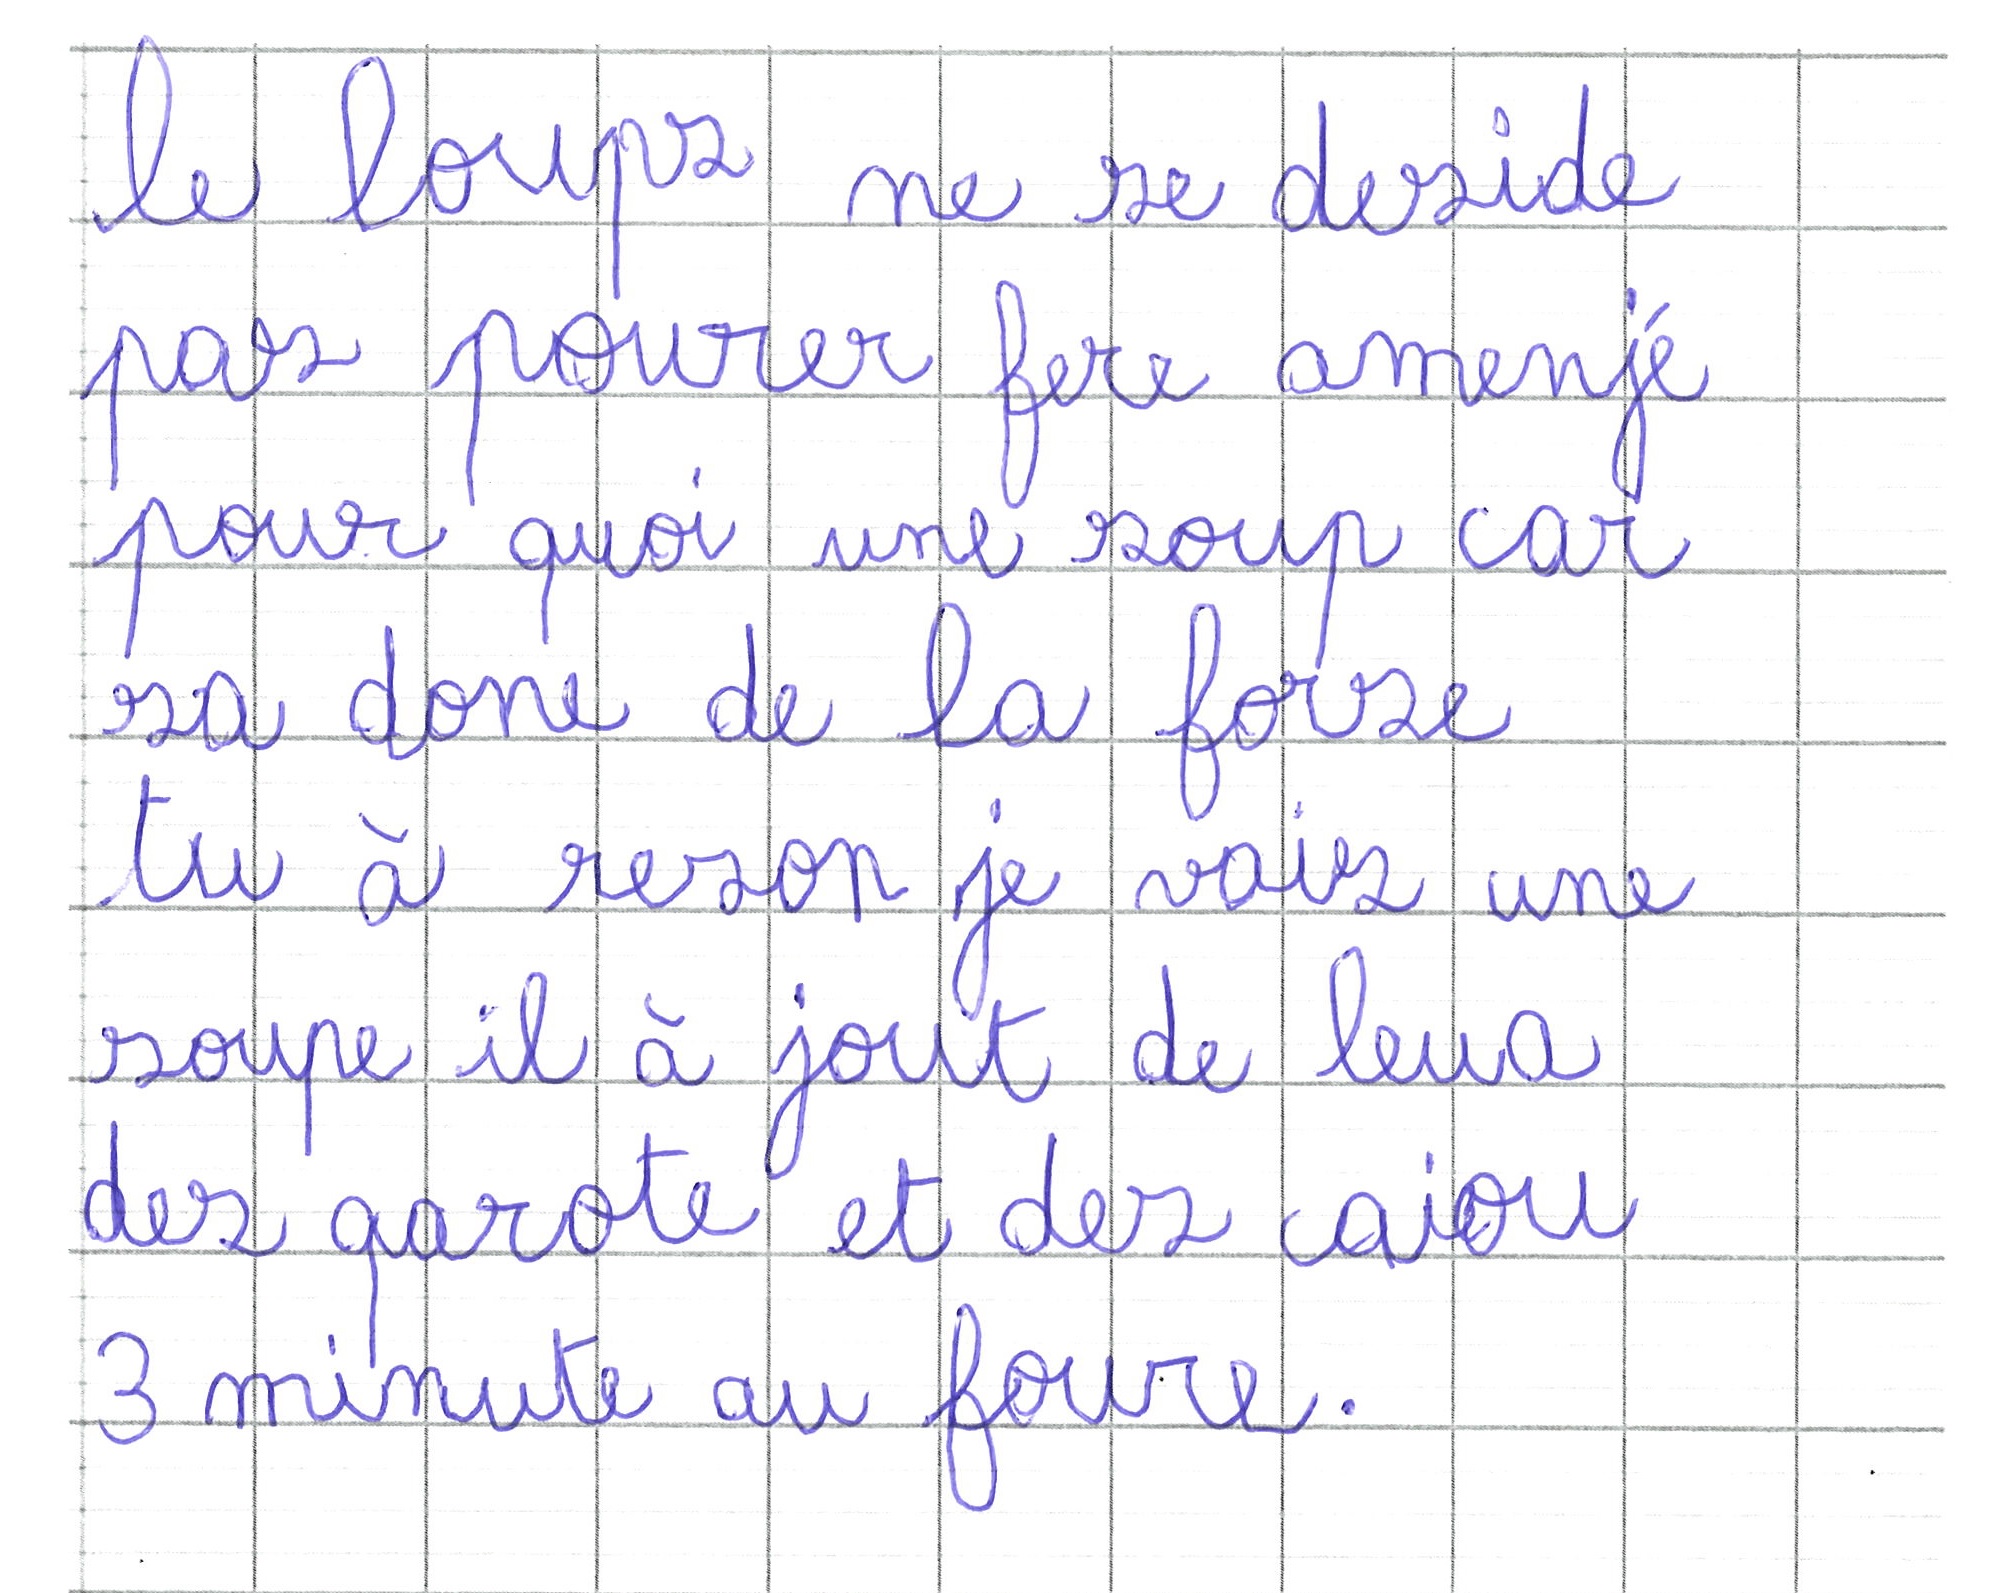 le loups ne se deside
pas pourer fere amenjé
pour quoi une soup car
sa done de la forse
tu à reson je vais une
soupe il à jout de leua
des qarote et des caiou
3 minute au foure.